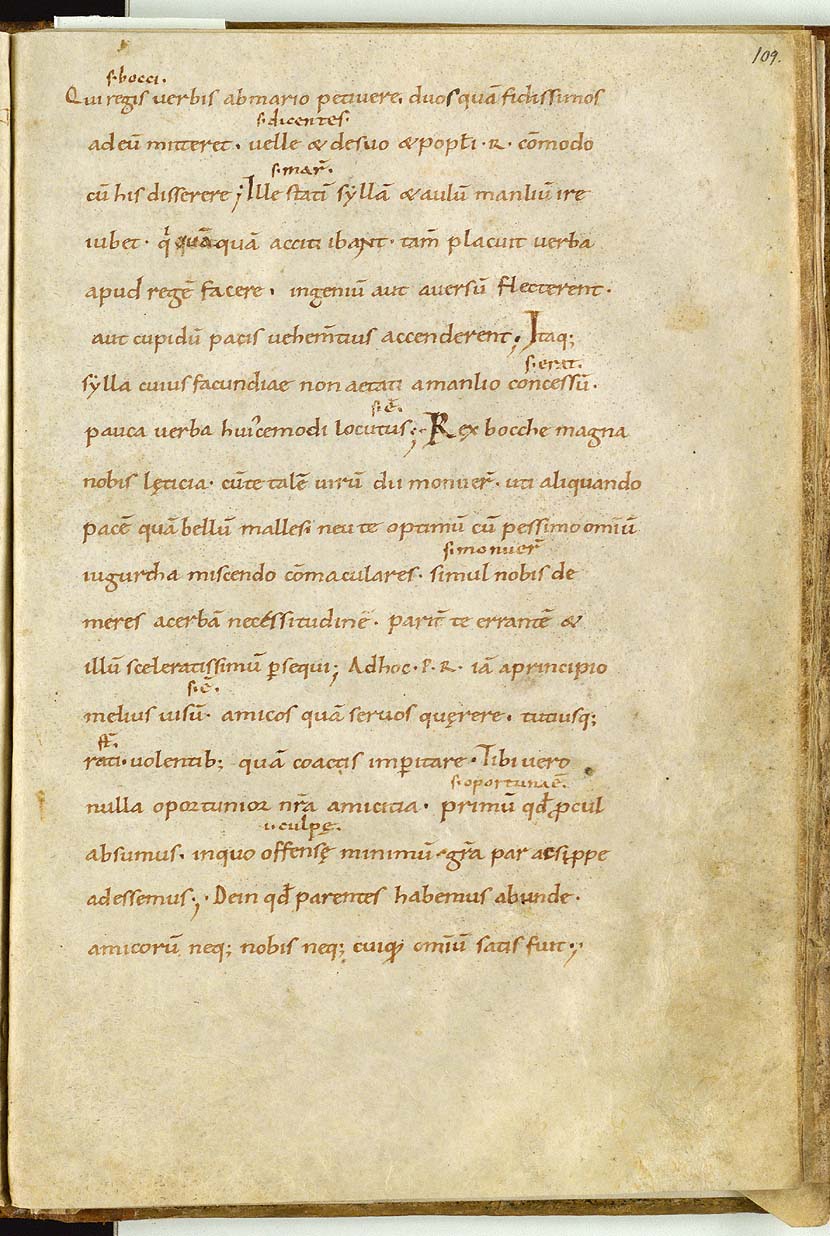 109.
s. bocci.
Qui regis verbis abmario petivere. duosquā fidissimos
s. dicentes.
adeū mitteret. velle & desuo & popƚi . R . cōmodo
s. mar̄.
cū his disserere; Ille statī syllā & aulū manliū ire
iubet. quāquā acciti ibant. tam̄ placuit verba
apud regē facere. ingeniū aut aversū flecterent.
aut cupidū pacis vehem̄tius accenderent. Itaq;
s. erat.
sylla cuius facundiae non aetati amanlio concessū.
s. ē.
pauca verba huicemodi locutus; Rex bocche magna
nobis lęticia. cūte talē virū dii monuer̄. uti aliquando
pacē quā bellū malles. neu te optimū cū pessimo omīū
s. monuer̄
iugurtha miscendo cōmaculares. simul nobis de
meres acerbā necessitudinē. parit̄ te errantē &
illū sceleratissimū ꝑsequi; Adhoc . P. R. iā aprincipio
s. ē.
melius visū. amicos quā servos quęrere. tutiusq;
rati. volentib; quā coactis imꝑitare. Tibi vero
s. oportunaē.
nulla oportunior nr̄a amicitia. primū qđ ꝓcul
culpę.
absumus. inquo offensę minimū. gr̄a par acsi ppe
adessemus; Dein qđ parentes habemus abunde.
amicorū neq; nobis neq; cuiq̄ omīū satis fuit;